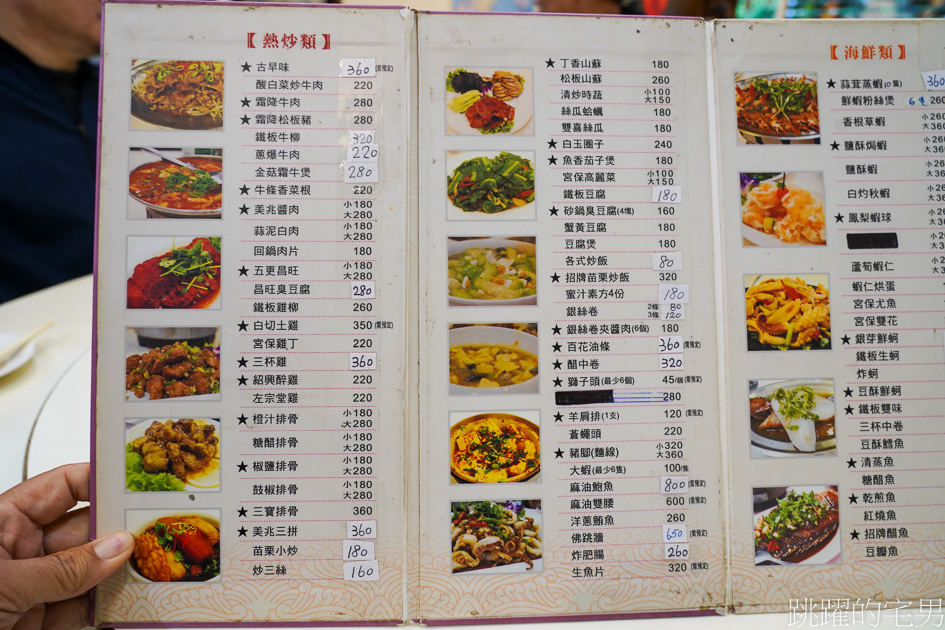 【熱炒類】
★ 古早味 360 (需預定)
酸白菜炒牛肉 220
★ 霜降牛肉 280
★ 霜降松板豬 280
鐵板牛柳 320
蔥爆牛肉 220
金菇霜牛煲 280
★ 牛條香菜根 220
★ 美兆醬肉 小180 大280
蒜泥白肉 小180 大280
回鍋肉片 180
★ 五更昌旺 小180 大280
昌旺臭豆腐 280
鐵板雞柳 260
★ 白切土雞 350 (需預定)
宮保雞丁 220
★ 三杯雞 360
★ 紹興醉雞 220
左宗堂雞 220
★ 橙汁排骨 小180 大280
糖醋排骨 小180 大280
★ 椒鹽排骨 小180 大280
鼓椒排骨 小180 大280
★ 三寶排骨 360
★ 美兆三拼 360
苗栗小炒 180
炒三絲 160
★ 丁香山蘇 180
松板山蘇 260
清炒時蔬 小100 大150
絲瓜蛤蠣 180
雙喜絲瓜 180
★ 白玉圈子 240
★ 魚香茄子煲 180
宮保高麗菜 小100 大150
鐵板豆腐 180
★ 砂鍋臭豆腐(4塊) 160
蟹黃豆腐 180
豆腐煲 180
各式炒飯 80
★ 招牌苗栗炒飯 320
蜜汁素方4份 180
銀絲卷 2條 80 3條 120
★ 銀絲卷夾醬肉(6個) 180
★ 百花油條 360 (需預定)
★ 醋中卷 320
★ 獅子頭(最少6個) 45/個 (需預定)
280
★ 羊肩排(1支) 120 (需預定)
蒼蠅頭 220
★ 豬腳(麵線) 小320 大360
大蝦(最少6隻) 100/隻
麻油鮑魚 800 (需預定)
麻油雙腰 600 (需預定)
洋蔥鮪魚 260
佛跳牆 650 (需預定)
炸肥腸 260
生魚片 320 (需預定)
【海鮮類】
★ 蒜茸蒸蝦(10隻) 360
鮮蝦粉絲煲 6隻 260
香根草蝦 小260 大360
★ 鹽酥焗蝦
鹽酥蝦
白灼秋蝦
★ 鳳梨蝦球
蘆筍蝦仁
蝦仁烘蛋
宮保尤魚
宮保雙花
★ 銀芽鮮蚵
鐵板生蚵
炸蚵
★ 豆酥鮮蚵
★ 鐵板雙味
三杯中卷
豆酥鱈魚
★ 清蒸魚
糖醋魚
★ 乾煎魚
紅燒魚
★ 招牌醋魚
豆瓣魚
跳躍的宅男